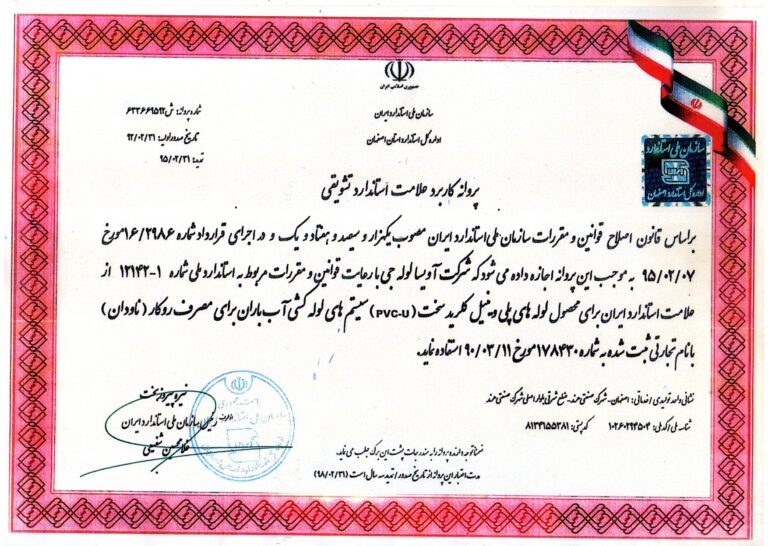 جمهوری اسلامی ایران
سازمان ملی استاندارد ایران
اداره کل استاندارد استان اصفهان
شماره پروانه: ش ۶۳۳۶۶۹۵۹۲
تاریخ صدور اولیه: ۹۲/۰۲/۳۱
تمدید: ۹۵/۰۲/۳۱
سازمان ملی استاندارد
اداره کل استاندارد اصفهان
پروانه کاربرد علامت استاندارد تشویقی
براساس قانون اصلاح قوانین و مقررات سازمان ملی استاندارد ایران مصوب یکهزار و سیصد و هفتاد و یک و در اجرای قرارداد شماره ۱۶/۲۹۸۶ مورخ
۹۵/۰۲/۰۷ به موجب این پروانه اجازه داده می شود که شرکت آویسا لوله جی با رعایت قوانین و مقررات مربوط به استاندارد ملی شماره ۱-۱۲۱۴۲ از
علامت استاندارد ایران برای محصول لوله های پلی وینیل کلرید سخت (PVC-U) سیستم های لوله کشی آب باران برای مصرف روکار (ناودان)
با نام تجارتی ثبت شده به شماره ۱۷۸۴۳۰ مورخ ۹۰/۰۳/۱۱ استفاده نماید.
نشانی واحد تولیدی: اصفهان-
شناسه ملی: ۱۰۲۶۰۲۹۴۵۰۴ کدپستی: ۸۱۳۹۱۵۵۳۸۱
نیره پیروزبخت
رئیس سازمان ملی استاندارد ایران
غلامحسین شفیعی
ضمناً توجه دارنده پروانه را به مندرجات پشت این برگ جلب می نماید.
مدت اعتبار این پروانه از تاریخ صدور / تمدید سه سال است (۹۸/۰۲/۳۱)